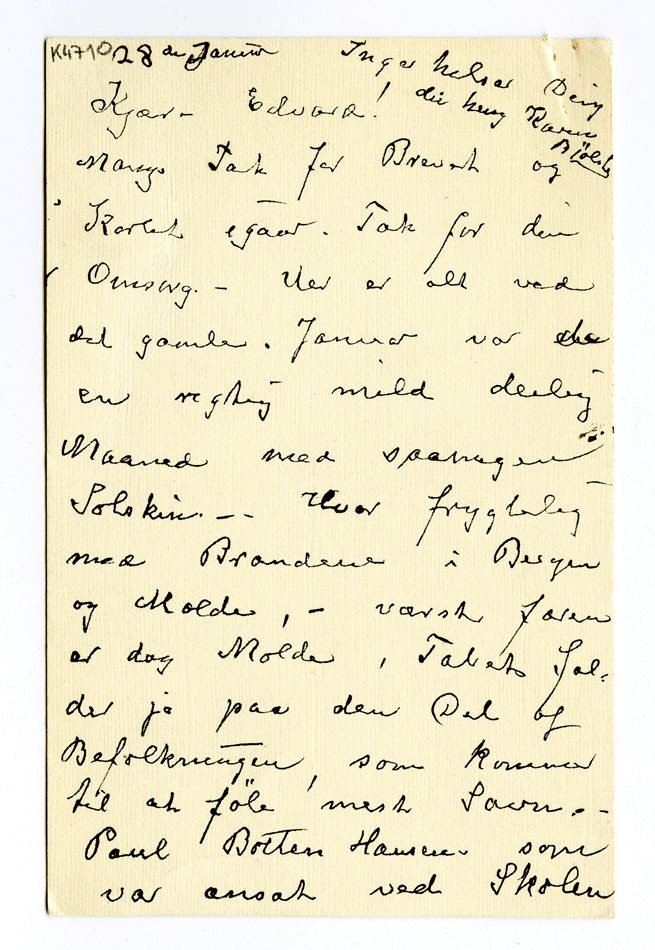 K4710
28 de Januar
Inger helser Dem
Karen
Kjære Edvard!
Mange Tak for Brevet og
Kortet igaar. Tak for din
Omsorg. – Her er alt ved
det gamle. Januar var
en regtig mild deilig
Maaned med saamegen
Solskin. – – Hvor frygtelig
med Brandene i Bergen
og Molde, – værst faren
er dog Molde, Tabets fal-
der jo paa den Del af
Befolkningen, som kommer
til at føle mest Savn. –
Paul Botten Hansen som
var ansat ved Skolen